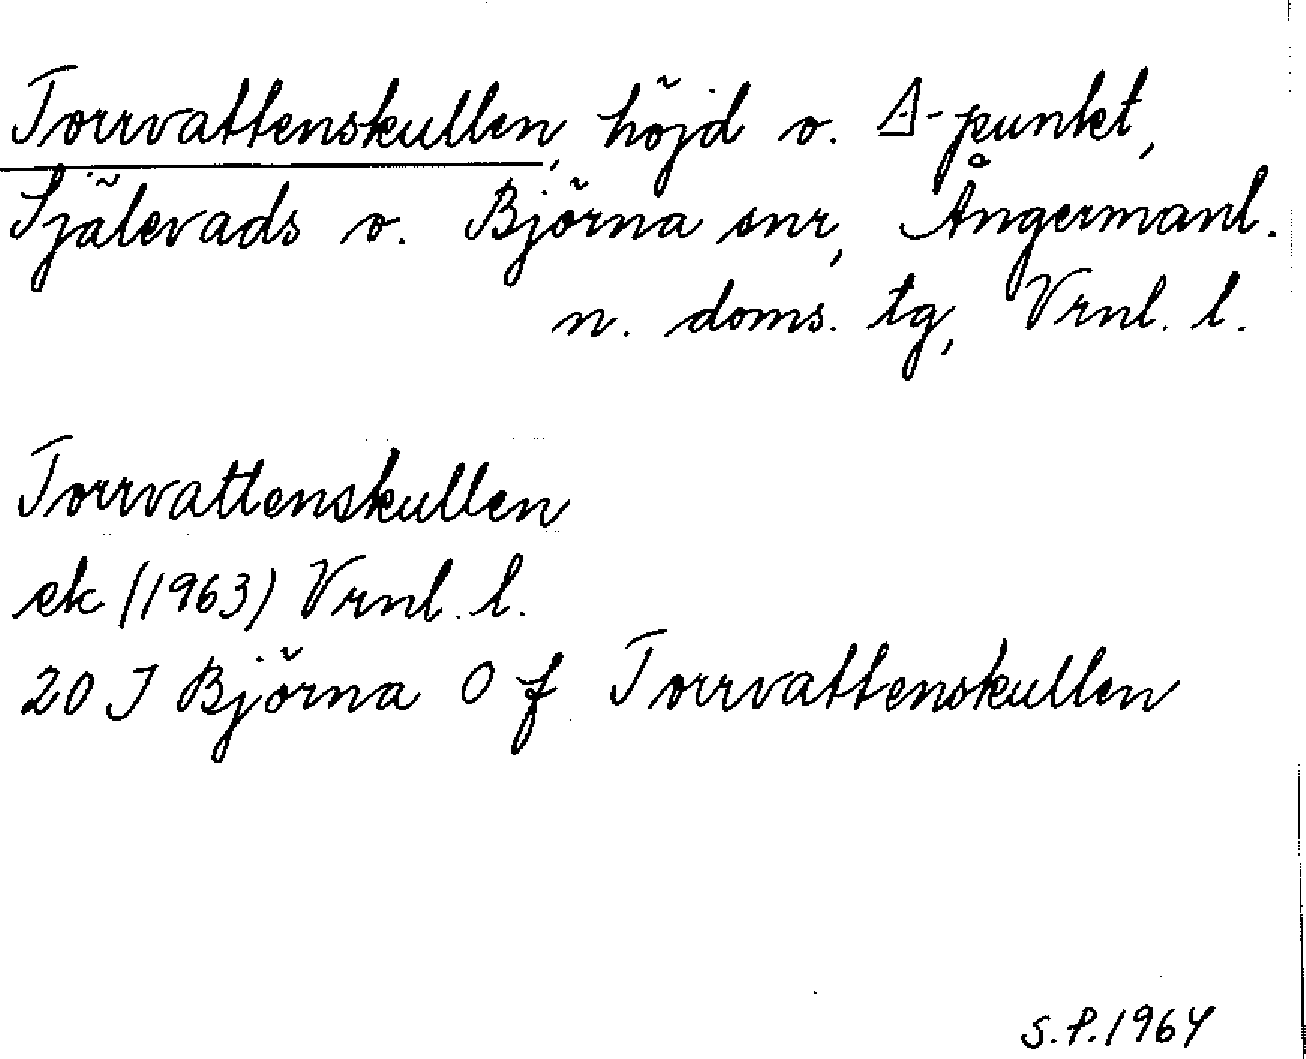 Torrvattenskullen, höjd o. Δ-punkt,
Själevads o. Björna snr, Ångermanl.
n. doms. tg, Vrnl. l.
Torrvattenskullen
ek (1963) Vrnl. l.
20 J Björna 0 f Torrvattenskullen
S.P.1964